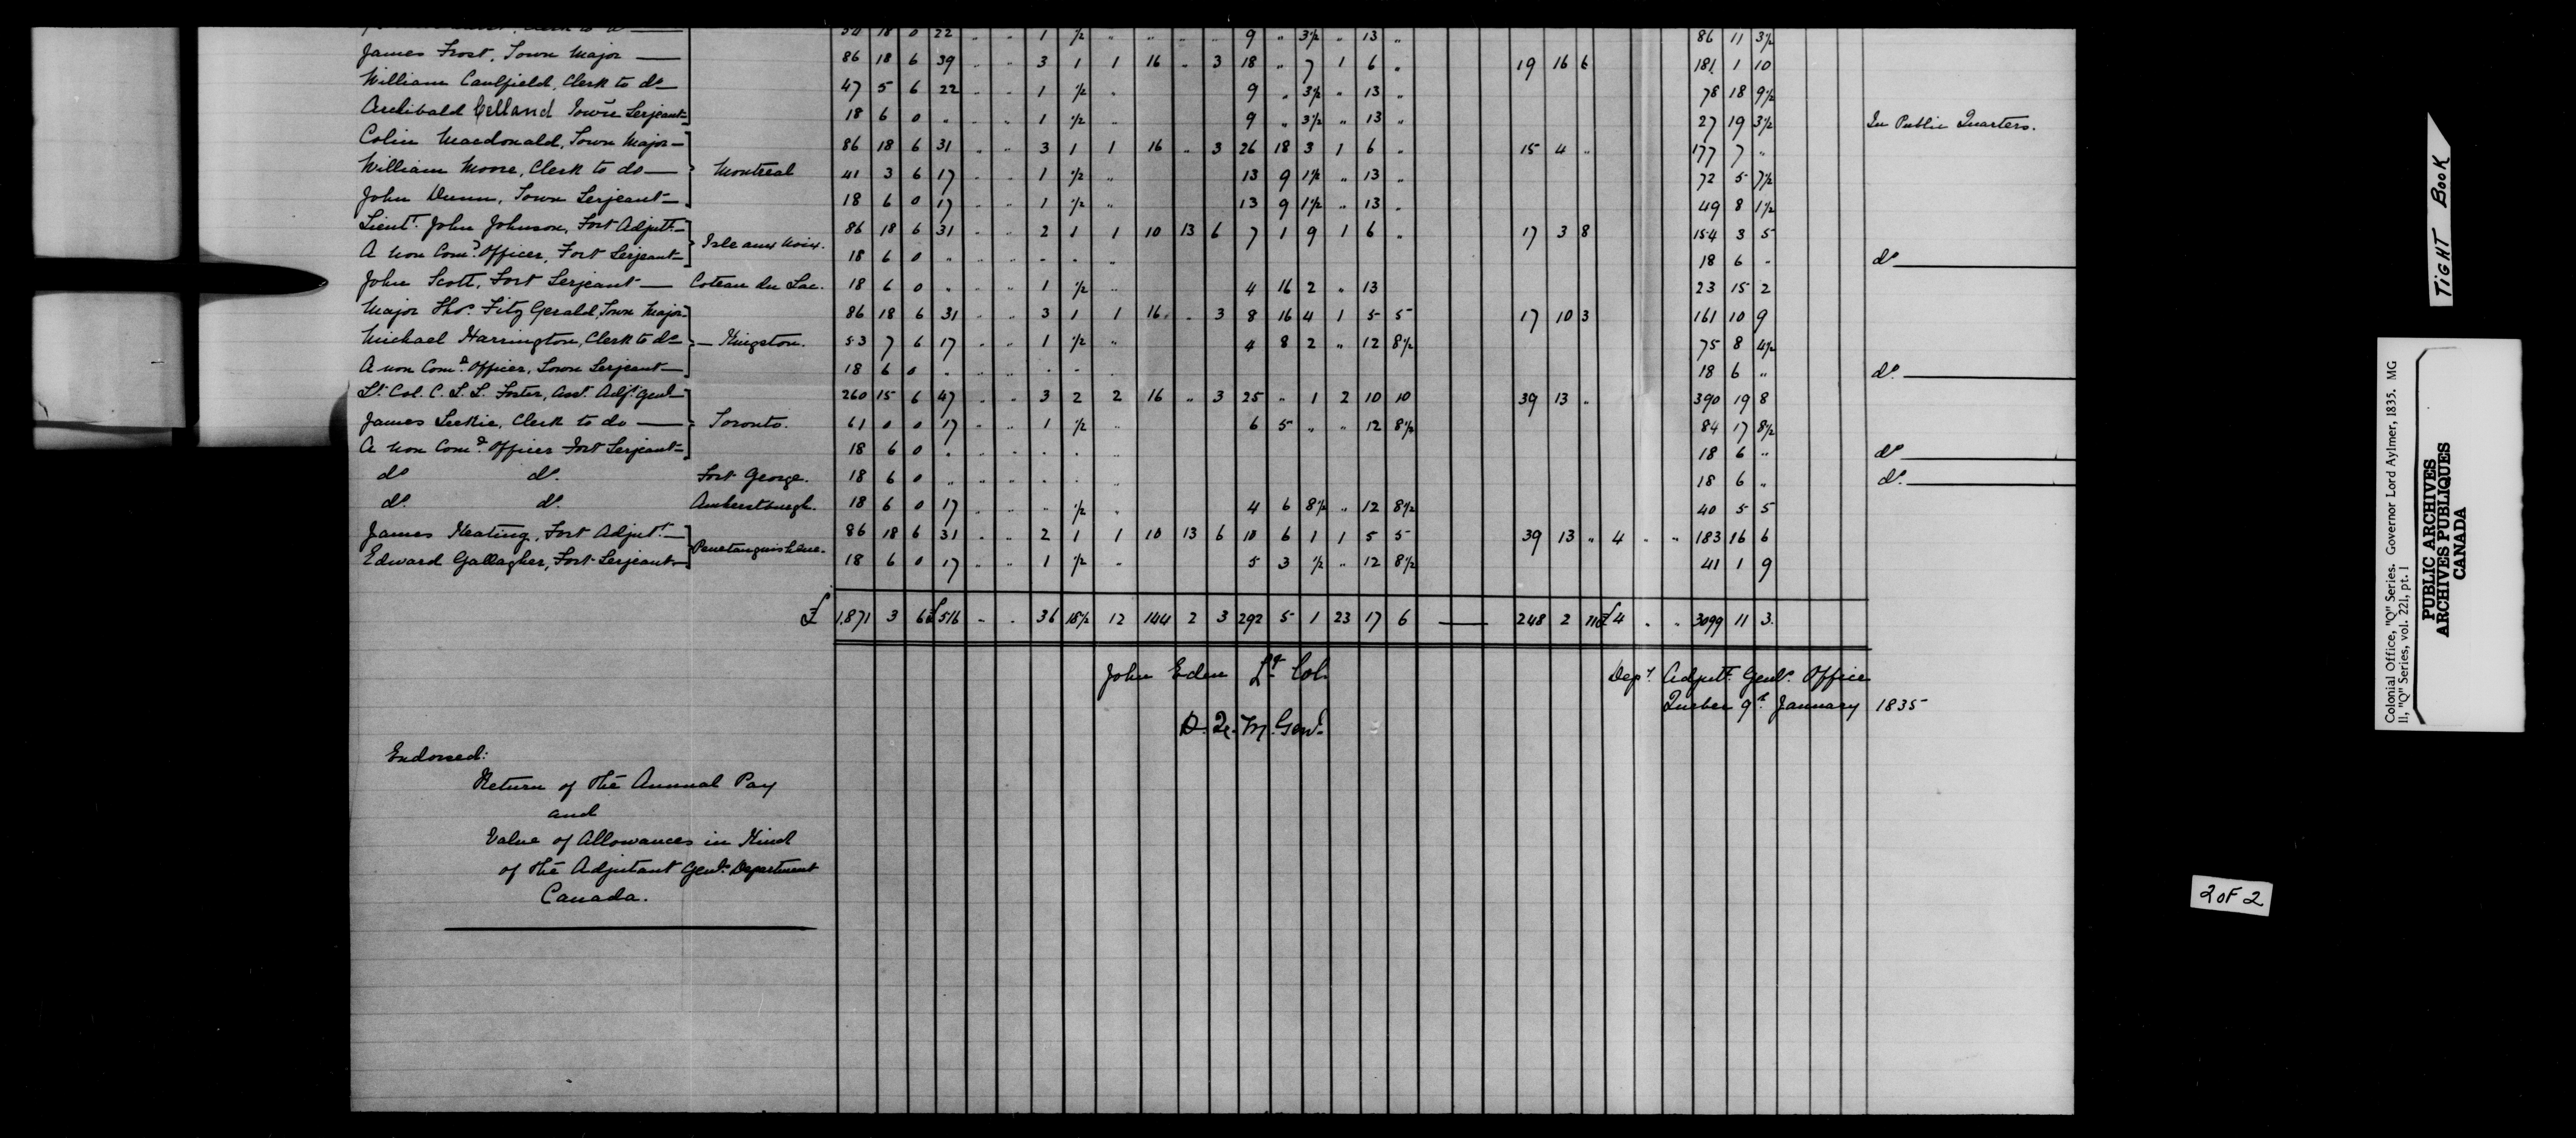 Clerk to do 54 18 0 22 " " 1 ½ " " " " 9 " 3½ " 13 " 86 11 3½
James Frost, Town Major 86 18 6 39 " " 3 1 1 16 " 3 18 " 7 1 6 " 19 16 6 181 1 10
William Caulfield, Clerk to do 47 5 6 22 " " 1 ½ " 9 " 3½ " 13 " 78 18 9½
Archibald Celland Town Serjeant 18 6 0 " " " 1 ½ " 9 " 3½ " 13 " 27 19 3½ In Public Quarters.
Colin Macdonald, Town Major 86 18 6 31 " " 3 1 1 16 " 3 26 18 3 1 6 " 15 4 " 177 7 "
William Moore, Clerk to do Montreal 41 3 6 17 " " 1 ½ " 13 9 1½ " 13 " 72 5 7½
John Dunn, Town Serjeant 18 6 0 17 " " 1 ½ " 13 9 1½ " 13 " 49 8 1½
Lieut. John Johnson, Fort Adjutt. 86 18 6 31 " " 2 1 1 10 13 6 7 1 9 1 6 " 17 3 8 154 3 5
A non Comd. Officer, Fort Serjeant Isle aux Noix. 18 6 0 " " " " " " 18 6 " do
John Scott, Fort Serjeant Coteau du Lac. 18 6 0 " " " 1 ½ " 4 16 2 " 13 23 15 2
Major Thos. Fitz Gerald, Town Major 86 18 6 31 " " 3 1 1 16 " 3 8 16 4 1 5 5 17 10 3 161 10 9
Michael Harrington, Clerk to do Kingston. 53 7 6 17 " " 1 ½ " 4 8 2 " 12 8½ 75 8 4½
A non Comd. Officer, Town Serjeant 18 6 0 " " " " " " 18 6 " do.
Lt. Col. C. L. L. Foster, Asst. Adjt. Genl. 260 15 6 47 " " 3 2 2 16 " 3 25 " 1 2 10 10 39 13 " 390 19 8
James Leckie, Clerk to do Toronto. 61 0 0 17 " " 1 ½ " 6 5 " " 12 8½ 84 17 8½
A non Comd. Officer Fort Serjeant 18 6 0 " " " " " " 18 6 " do
do do. Fort George. 18 6 0 " " " " " " 18 6 " do.
do. do. Amherstburgh. 18 6 0 17 " " " ½ " 4 6 8½ " 12 8½ 40 5 5
James Keating, Fort Adjutt. 86 18 6 31 " " 2 1 1 10 13 6 10 6 1 1 5 5 39 13 " 4 " " 183 16 6
Edward Gallagher, Fort Serjeant Penetanguishine. 18 6 0 17 " " 1 ½ " 5 3 ½ " 12 8½ 41 1 9
£ 1,871 3 6 £516 " " 36 18½ 12 144 2 3 292 5 1 23 17 6 248 2 £4 " " 3099 11 3.
John Eden Lt. Col.
D. Q. M. Genl.
Dept. Adjutt. Genls. Office
Quebec 9th. January 1835
Endorsed:
Return of the Annual Pay
and
Value of Allowances in Kind
of the Adjutant Genls. Department
Canada.
TIGHT BOOK
Colonial Office, "Q" Series. Governor Lord Aylmer, 1835. MG
11, "Q" Series, vol. 221, pt. 1
PUBLIC ARCHIVES
ARCHIVES PUBLIQUES
CANADA
2 OF 2